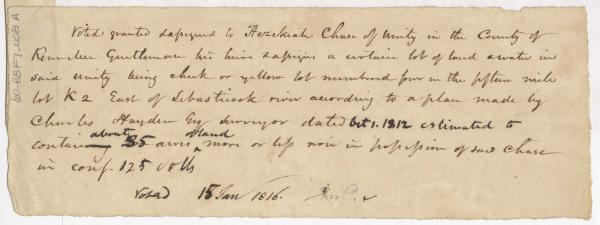 Voted granted & assigned to Hezekiah Chase of Unity in the County of
Kennebec Gentleman his heirs & assigns a certain lot of land & water in
said Unity being check or yellow lot numbered four in the fifteen mile
lot K 2 East of Sebasticook river according to a plan made by
Charles Hayden Esq Surveyor dated Oct 1. 1812 estimated to
contain about 85 acres & land more or less now in possession of said Chase
in conf. 125 dolls
Voted 15 Jan 1816.